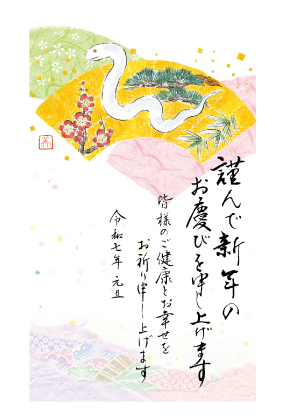 謹んで新年の
お慶びを申し上げます
皆様のご健康とお幸せを
お祈り申し上げます
令和七年 元旦